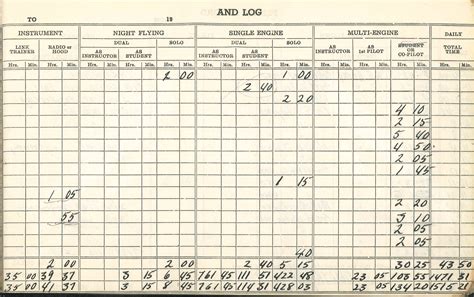 AND LOG
TO 19
INSTRUMENT NIGHT FLYING SINGLE ENGINE MULTI-ENGINE DAILY
LINK TRAINER RADIO or HOOD DUAL SOLO DUAL SOLO AS INSTRUCTOR AS 1st PILOT STUDENT OR CO-PILOT TOTAL TIME
AS INSTRUCTOR AS STUDENT AS INSTRUCTOR AS STUDENT
Hrs. Min. Hrs. Min. Hrs. Min. Hrs. Min. Hrs. Min. Hrs. Min. Hrs. Min. Hrs. Min. Hrs. Min. Hrs. Min. Hrs. Min. Hrs. Min.
2 00 1 00
2 40
2 20
4 10
2 15
5 40
4 50
2 05
1 45
1 15
1 05
55 10
2 10
2 05
40
2 00 2 00 2 40 5 15 30 25 43 50
35 00 39 37 3 15 6 45 761 45 111 51 422 48 23 05 103 55 1471 31
35 00 41 37 3 15 8 45 761 45 114 31 428 03 23 05 134 20 1515 21